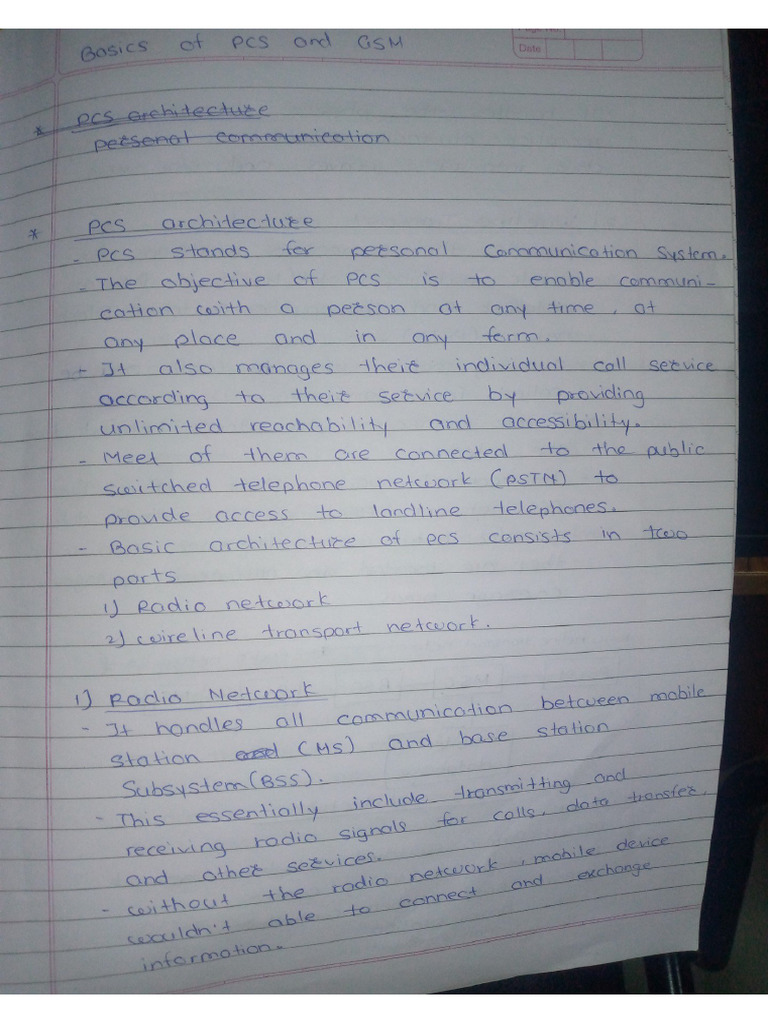 Page No.
Date
Basics of PCS and GSM
* PCS architecture
personal communication
* PCS architecture
- PCS stands for personal Communication System.
- The objective of PCS is to enable communi-
cation with a person at any time, at
any place and in any form.
- It also manages their individual call service
according to their service by providing
unlimited reachability and accessibility.
- Meet of them are connected to the public
switched telephone network (PSTN) to
provide access to landline telephones.
- Basic architecture of PCS consists in two
parts
1) Radio network
2) wireline transport network.
1) Radio Network
- It handles all communication between mobile
station and (MS) and base station
Subsystem (BSS).
- This essentially include transmitting and
receiving radio signals for calls, data transfer,
and other services.
- without the radio network, mobile device
wouldn't able to connect and exchange
information.